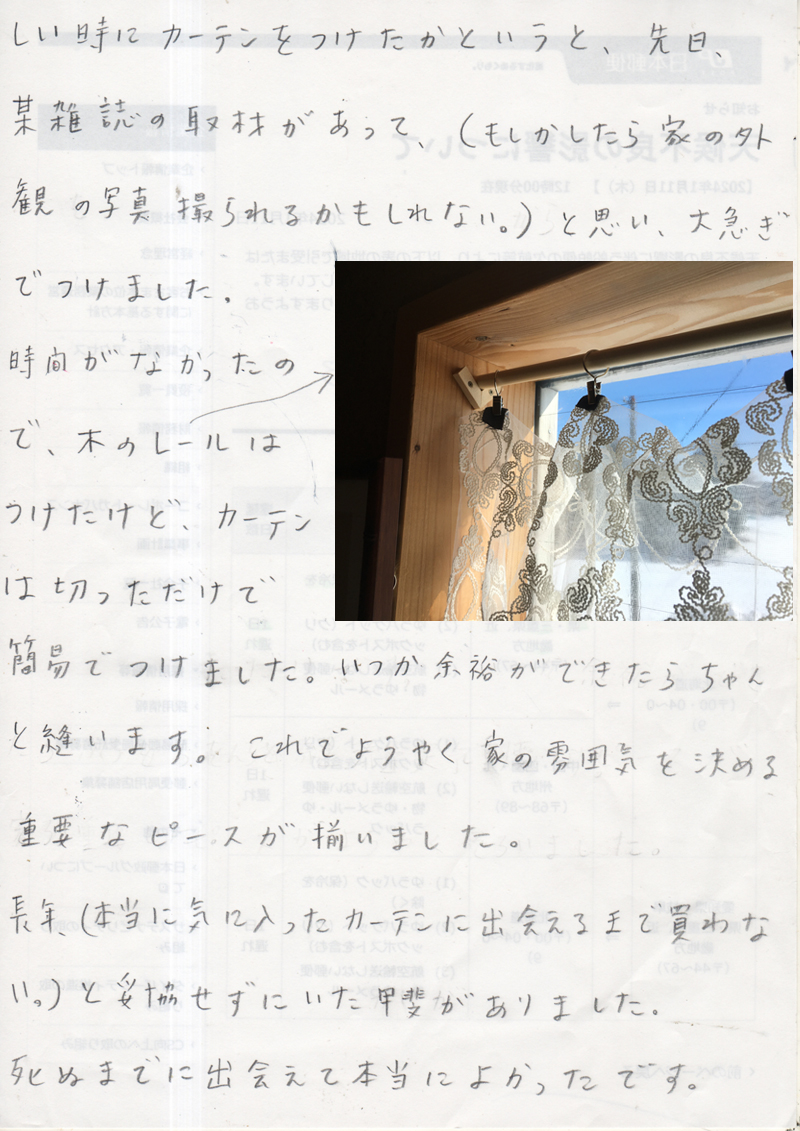 しい時にカーテンをつけたかというと、先日、
某雑誌の取材があって、(もしかしたら家の外
観の写真撮られるかもしれない。)と思い、大急ぎ
でつけました。
時間がなかったの
で、木のレールは
つけたけど、カーテン
は切っただけで
簡易でつけました。いつか余裕ができたらちゃん
と縫います。これでようやく家の雰囲気を決める
重要なピースが揃いました。
長年、(本当に気に入ったカーテンに出会えるまで買わな
い。)と妥協せずにいた甲斐がありました。
死ぬまでに出会えて本当によかったです。